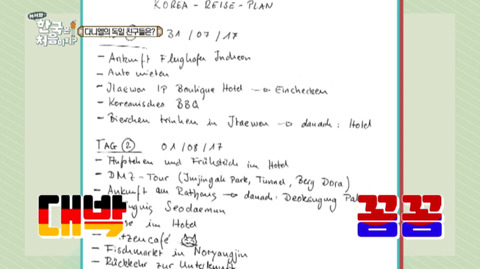 한국은
처음이지?
다니엘의 독일 친구들은?
KOREA - REISE - PLAN
31/07/17
- Ankunft Flughafen Incheon
- Auto mieten
- Itaewon IP Boutique Hotel → Einchecken
- Koreanisches BBQ
- Bierchen trinken in Itaewon → danach: Hotel
TAG ② 01/08/17
- Aufstehen und Frühstück im Hotel
- DMZ-Tour (Imjingak Park, Tunnel, Berg Dora)
- Ankunft am Rathaus → danach: Deoksugung
Seodaemun
im Hotel
- Fischmarkt in Noryangjin
- Rückkehr zur Unterkunft
대박
꼼꼼